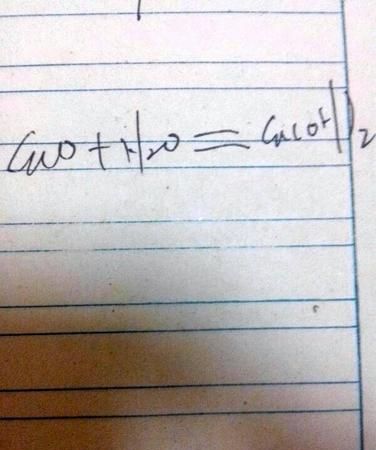 CaO+H₂O=Ca(OH)₂